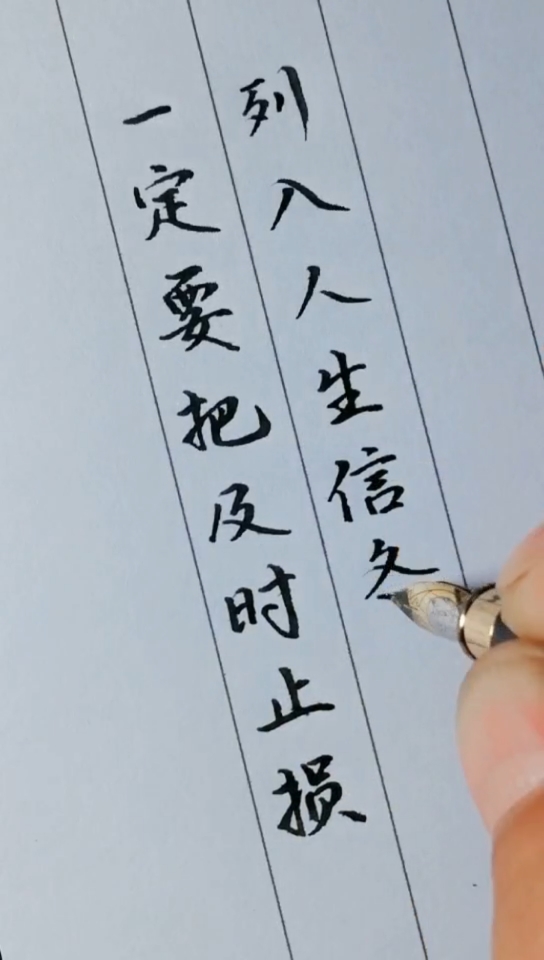 一定要把及时止损
列入人生信